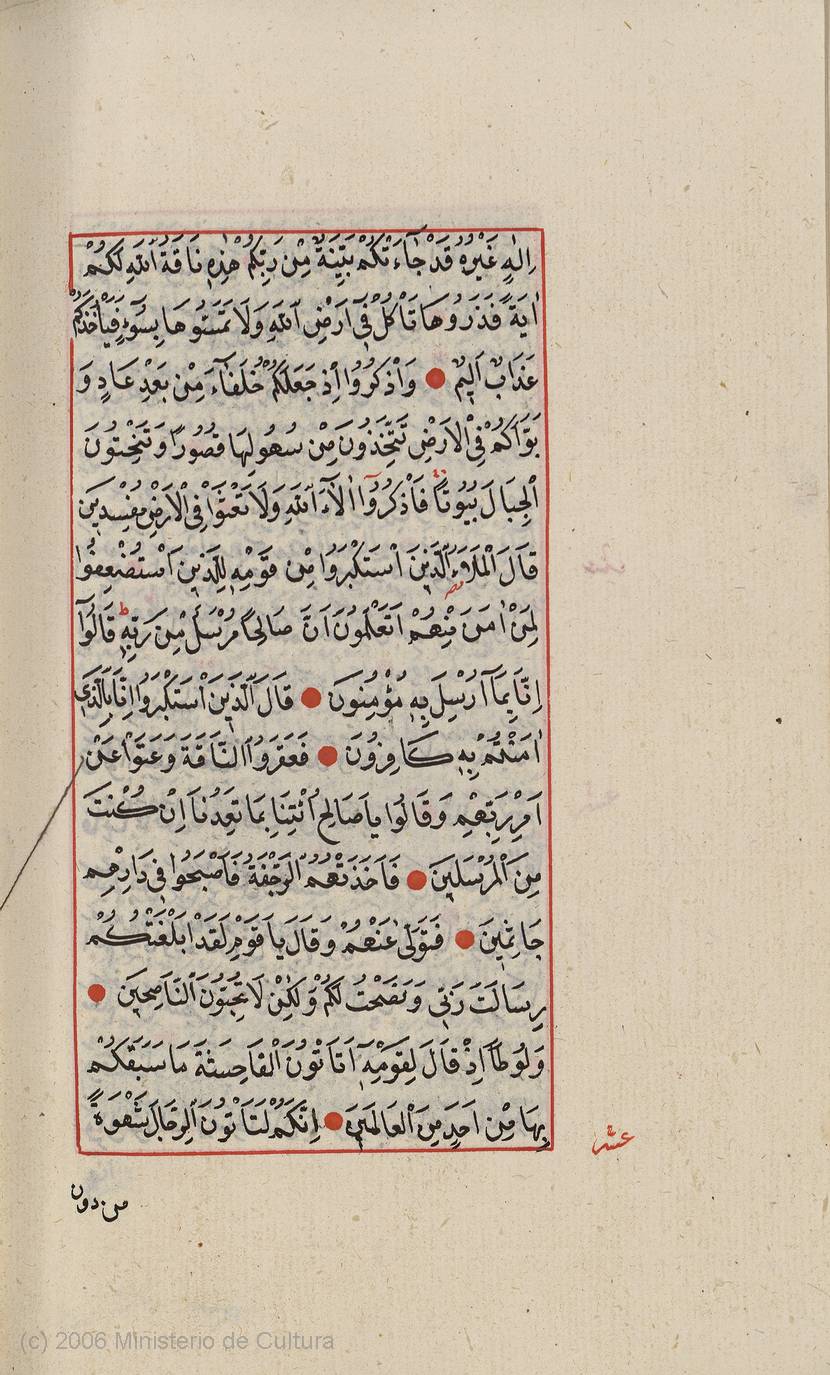 اِلٰهٍ غَيْرُهُ قَدْ جَآءَتْكُمْ بَيِّنَةٌ مِنْ رَبِّكُمْ هٰذِهِ نَاقَةُ اللّٰهِ لَكُمْ
اٰيَةً فَذَرُوهَا تَأْكُلْ فِى اَرْضِ اللّٰهِ وَلَا تَمَسُّوهَا بِسُوٓءٍ فَيَأْخُذَكُمْ
عَذَابٌ اَلِيمٌ ● وَاذْكُرُوا اِذْ جَعَلَكُمْ خُلَفَآءَ مِنْ بَعْدِ عَادٍ وَ
بَوَّاَكُمْ فِى الْاَرْضِ تَتَّخِذُونَ مِنْ سُهُولِهَا قُصُورًا وَتَنْحِتُونَ
الْجِبَالَ بُيُوتًا فَاذْكُرُوٓا اٰلَآءَ اللّٰهِ وَلَا تَعْثَوْا فِى الْاَرْضِ مُفْسِدِينَ
قَالَ الْمَلَاُ الَّذِينَ اسْتَكْبَرُوا مِنْ قَوْمِهِ لِلَّذِينَ اسْتُضْعِفُوا
لِمَنْ اٰمَنَ مِنْهُمْ اَتَعْلَمُونَ اَنَّ صَالِحًا مُرْسَلٌ مِنْ رَبِّهِ قَالُوٓا
اِنَّا بِمَآ اُرْسِلَ بِهِ مُؤْمِنُونَ ● قَالَ الَّذِينَ اسْتَكْبَرُوا اِنَّا بِالَّذِى
اٰمَنْتُمْ بِهِ كَافِرُونَ ● فَعَقَرُوا النَّاقَةَ وَعَتَوْا عَنْ
اَمْرِ رَبِّهِمْ وَقَالُوا يَا صَالِحُ ائْتِنَا بِمَا تَعِدُنَا اِنْ كُنْتَ
مِنَ الْمُرْسَلِينَ ● فَاَخَذَتْهُمُ الرَّجْفَةُ فَاَصْبَحُوا فِى دَارِهِمْ
جَاثِمِينَ ● فَتَوَلّٰى عَنْهُمْ وَقَالَ يَا قَوْمِ لَقَدْ اَبْلَغْتُكُمْ
رِسَالَتَ رَبِّى وَنَصَحْتُ لَكُمْ وَلٰكِنْ لَا تُحِبُّونَ النَّاصِحِينَ ●
وَلُوطًا اِذْ قَالَ لِقَوْمِهِٓ اَتَأْتُونَ الْفَاحِشَةَ مَا سَبَقَكُمْ
بِهَا مِنْ اَحَدٍ مِنَ الْعَالَمِينَ ● اِنَّكُمْ لَتَأْتُونَ الرِّجَالَ شَهْوَةً
عشر
من دون
(c) 2006 Ministerio de Cultura